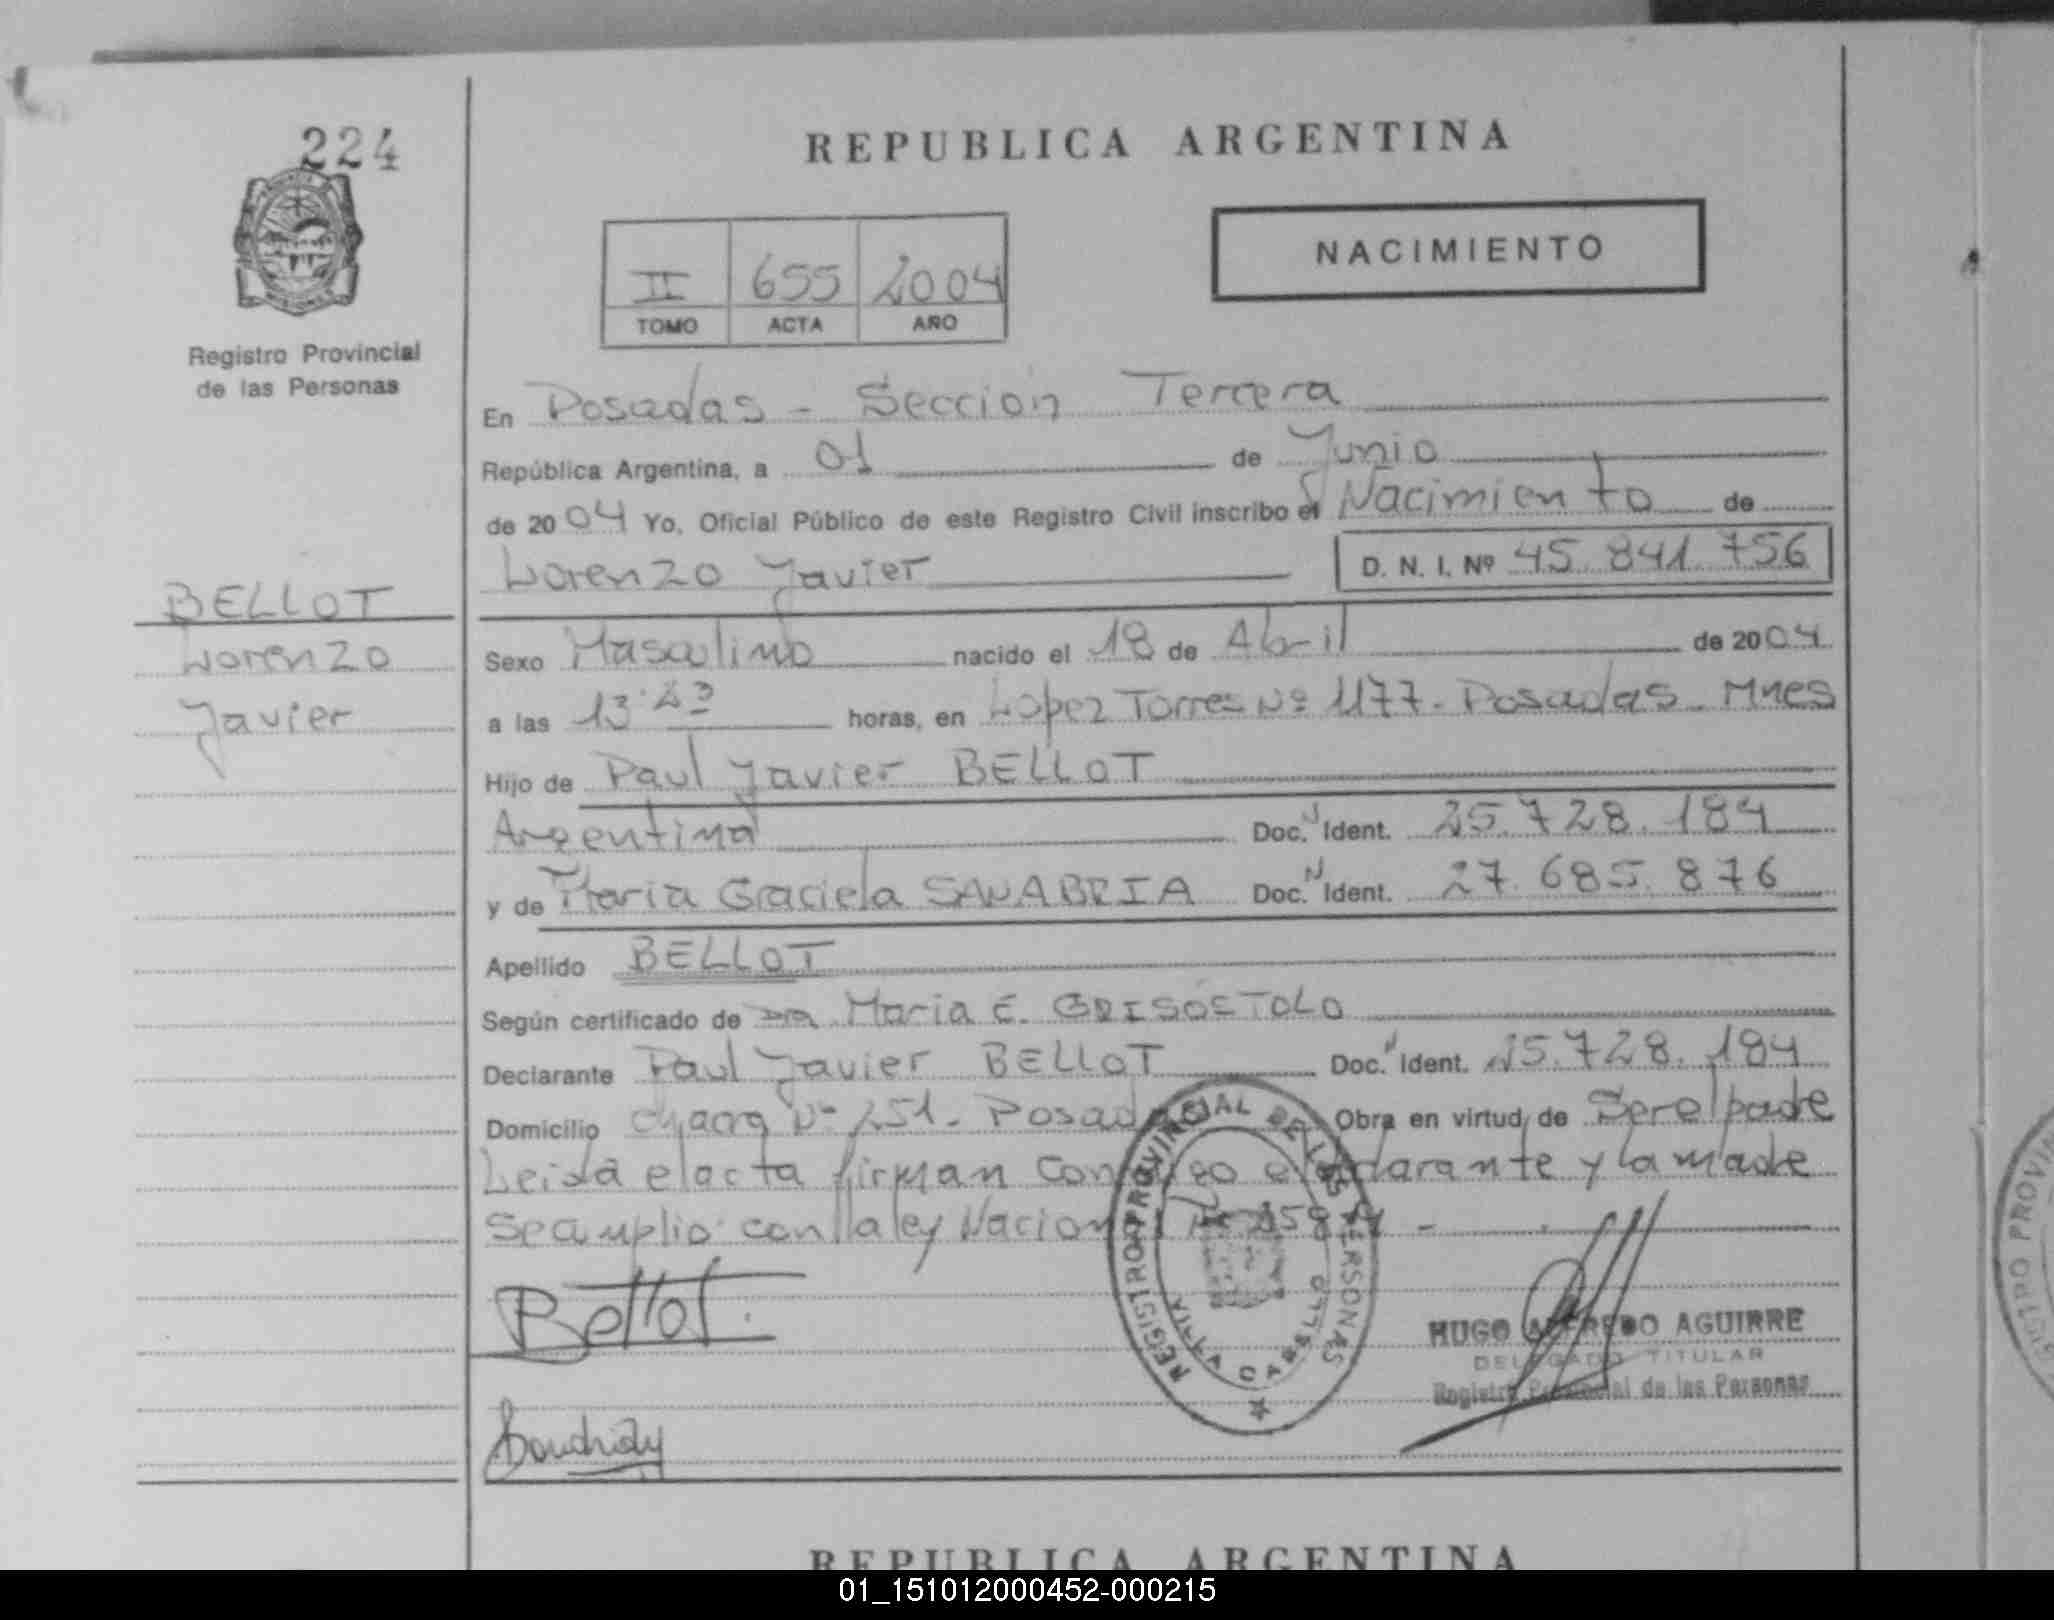 224
REPUBLICA ARGENTINA
NACIMIENTO
II 655 2004
TOMO ACTA AÑO
Registro Provincial
de las Personas
En Posadas - Sección Tercera
República Argentina, a 01 de Junio
de 2004 Yo, Oficial Público de este Registro Civil inscribo el Nacimiento de
Lorenzo Javier D. N. I. Nº 45.841.756
BELLOT
Lorenzo
Javier
Sexo Masculino nacido el 18 de Abril de 2004
a las 13 23 horas, en Lopez Torres Nº 1177. Posadas - Mnes
Hijo de Paul Javier BELLOT
Argentina Doc. N Ident. 25.728.184
y de Maria Graciela SANABRIA Doc. N Ident. 27.685.876
Apellido BELLOT
Según certificado de Dra Maria E. GRISOSTOLO
Declarante Paul Javier BELLOT Doc. N Ident. 25.728.184
Domicilio Chacra Nº 251. Posad Obra en virtud de Ser el padre
Leida el acta firman conmigo el declarante y la madre
Se cumplio con la ley Nacional
Bellot
REGISTRO PROVINCIAL DE LAS PERSONAS
VILLA CABELLO
HUGO ALFREDO AGUIRRE
DELEGADO TITULAR
Registro Provincial de las Personas
REPUBLICA ARGENTINA
01_151012000452-000215